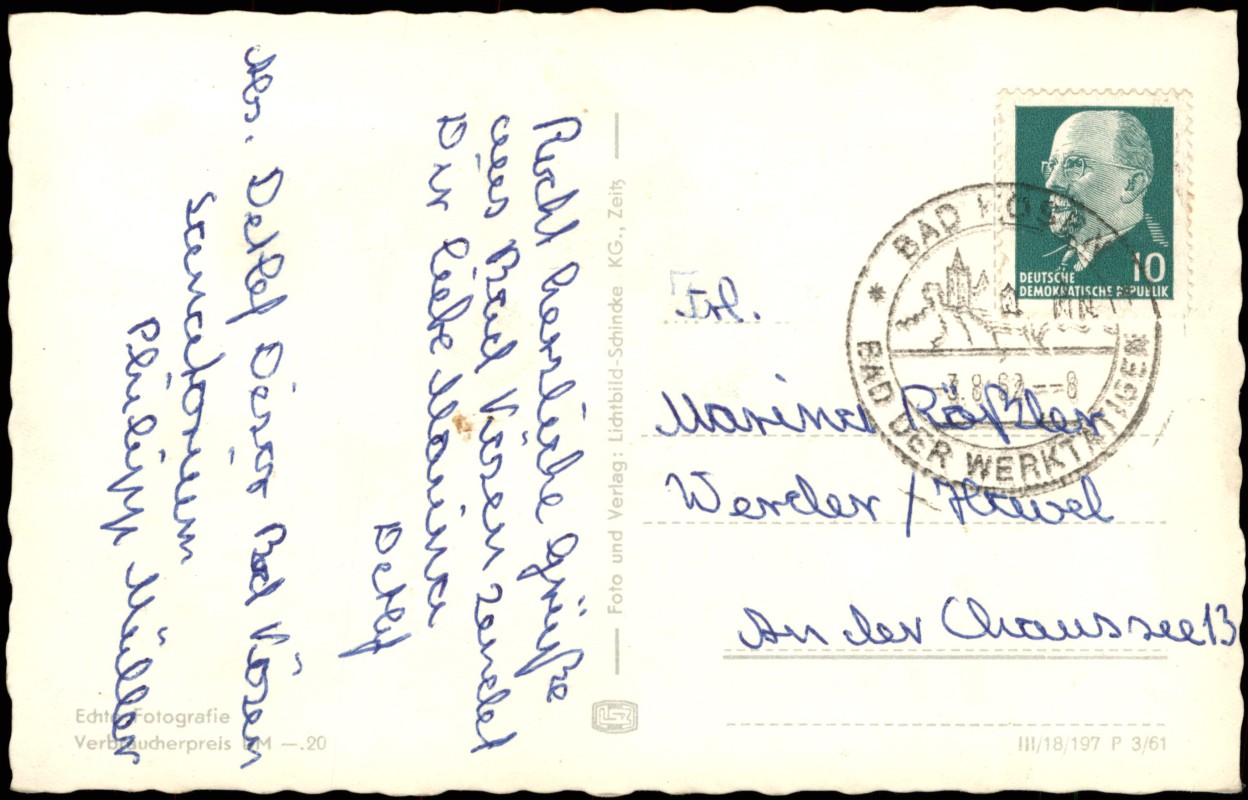 Recht herzliche Grüße
aus Bad Kösen sendet
Dir liebe Marina
Detlef
Abs. Detlef Bad Kösen
Sanatorium
Philipp Müller
Echte Fotografie
Verbraucherpreis DM —.20
Foto und Verlag: Lichtbild-Schincke KG., Zeitz
DEUTSCHE
DEMOKRATISCHE REPUBLIK
10
BAD KÖSEN
3.8.62--8
BAD DER WERKTÄTIGEN
Frl.
Marina Rößler
Werder / Havel
An der Chaussee 13
III/18/197 P 3/61